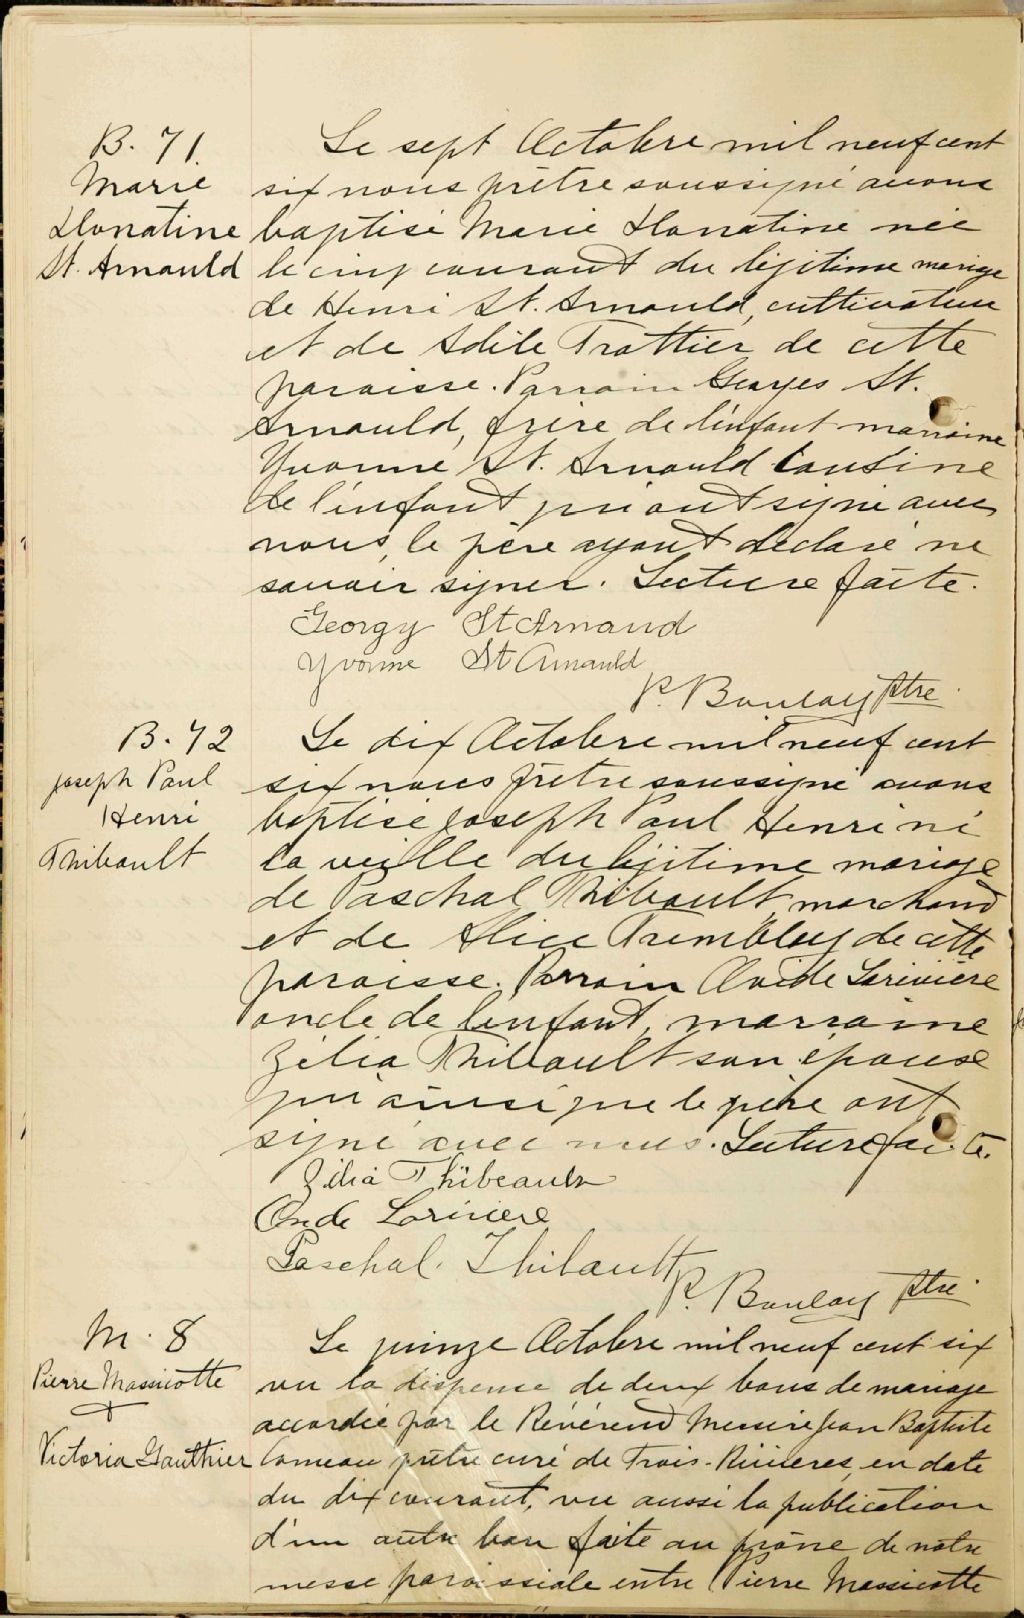 B. 71.
Marie
Donatine
St. Arnauld
Le sept Octobre mil neuf cent
six nous prêtre soussigné avons
baptisé Marie Donatine née
le cinq courant du légitime mariage
de Henri St. Arnould, cultivateur
et de Adèle Trottier de cette
paroisse. Parrain Georges St.
Arnould, frère de l'enfant marraine
Yvonne St. Arnauld Cousine
de l'enfant qui ont signé avec
nous, le père ayant déclaré ne
savoir signer. Lecture faite.
Georgy St Arnaud
Yvonne St Arnauld
P. Boulay Ptre.
B. 72
Joseph Paul
Henri
Thibault
Le dix Octobre mil neuf cent
six nous prêtre soussigné avons
baptisé Joseph Paul Henri né
la veille du légitime mariage
de Paschal Thibault, marchand
et de Alice Tremblay de cette
paroisse. Parrain Ovide Larivière
oncle de l'enfant, marraine
Zélia Thibault son épouse
qui ainsi que le père ont
signé avec nous. Lecture faite.
Zélia Thibeault
Larivière
Paschal. Thibault
P. Boulay Ptre.
M. 8
Pierre Massicotte
&
Victoria Gauthier
Le quinze Octobre mil neuf cent six
vu la dispense de deux bans de mariage
accordée par le Révérend Messire Jean Baptiste
Comeau prêtre curé de Trois-Rivières, en date
du dix courant, vu aussi la publication
d'un autre ban faite au prône de notre
messe paroissiale entre Pierre Massicotte